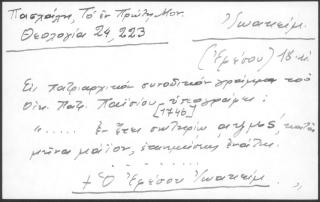 Πασχάλη, Τὸ ἐν Πρώτῃ Μον.
Θεολογία 24, 223
Ἰωακείμ.
(Ἐφέσου) 18. αἰ
Εἰς πατριαρχικὸν συνοδικὸν γράμμα τοῦ
Οἰκ. Πατρ. Παϊσίου ὑπογράφει:
[1746]
"..... ἐν ἔτει σωτηρίῳ αψμϛ, κατὰ
μῆνα μάϊον, ἐπινεμήσεως ἐνάτης.
+ Ὁ Ἐφέσου Ἰωακείμ. "